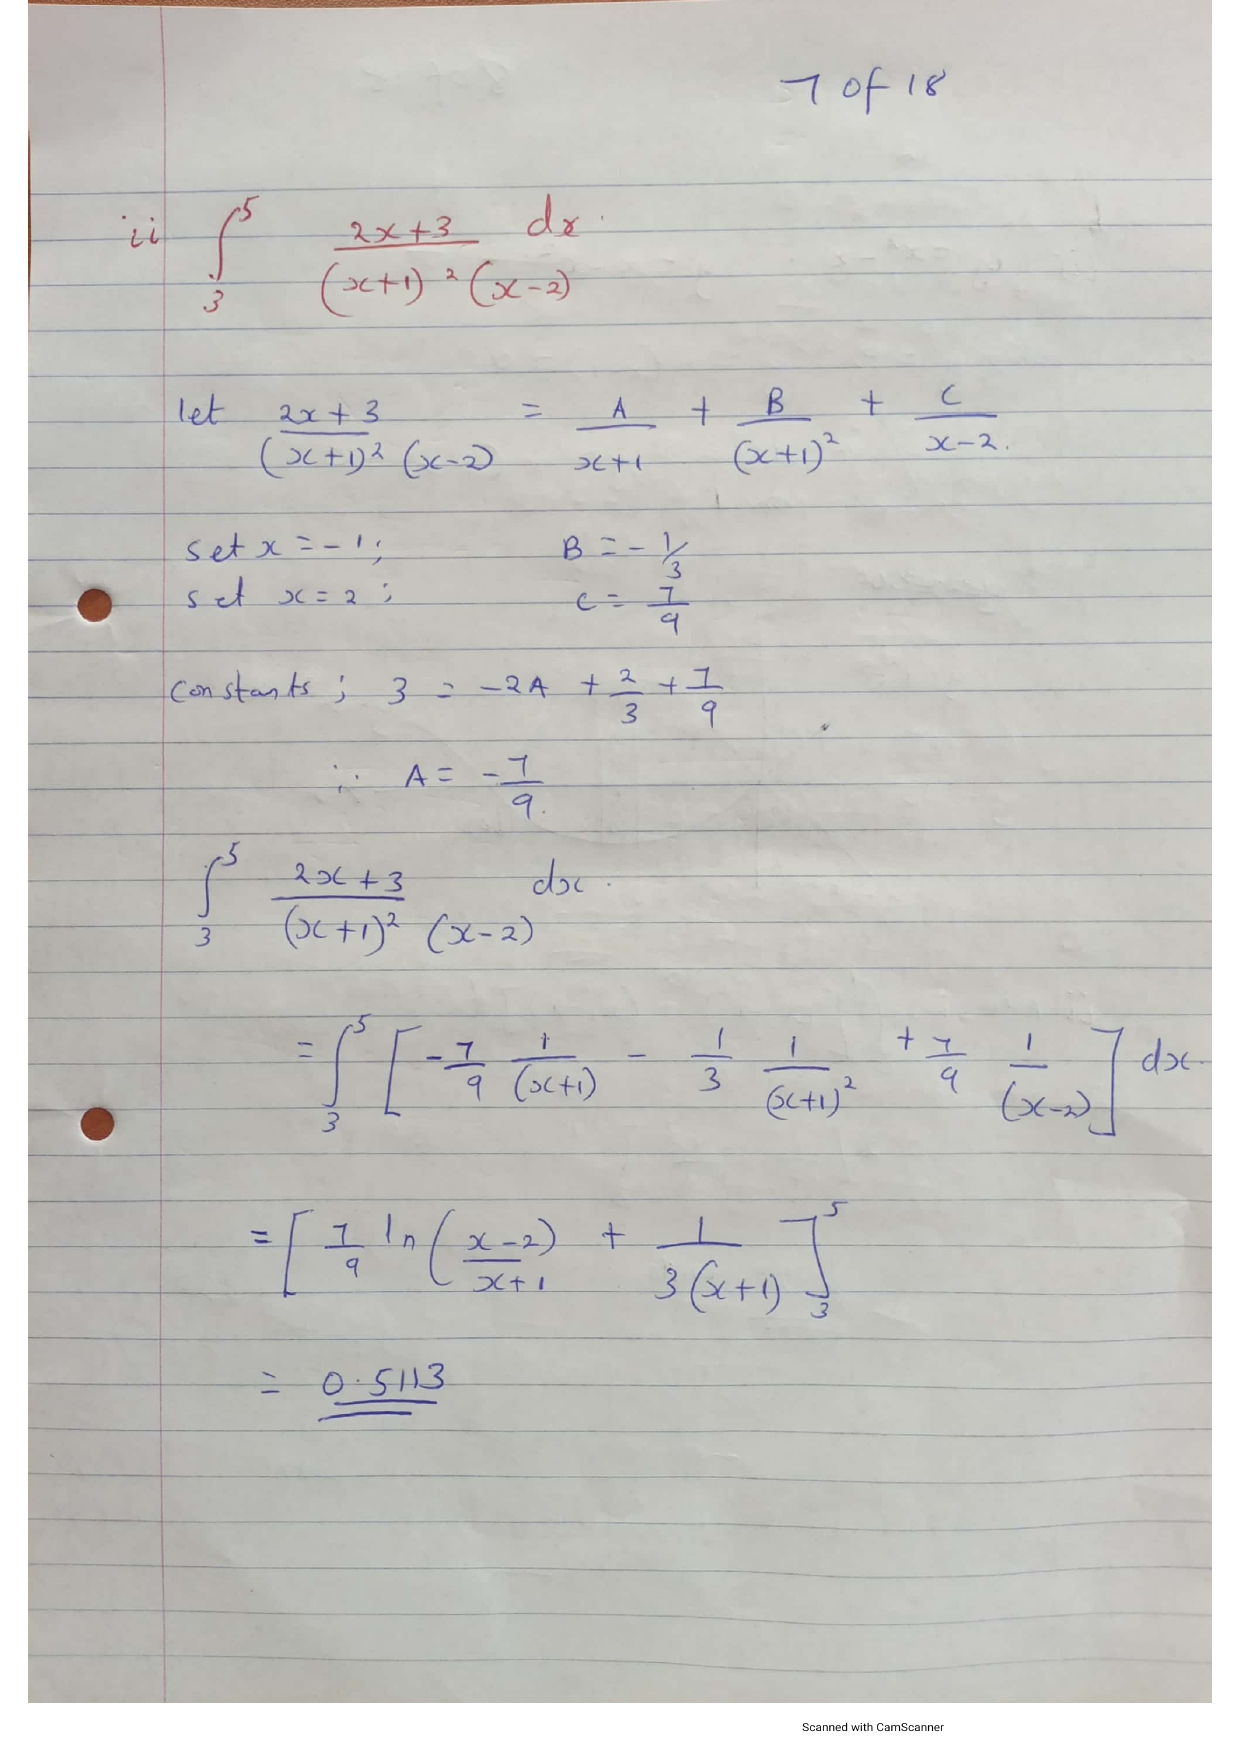 7 of 18
ii ∫₃⁵ (2x+3)/((x+1)²(x-2)) dx.
let (2x+3)/((x+1)²(x-2)) = A/(x+1) + B/(x+1)² + C/(x-2).
set x = -1; B = -1/3
set x = 2; C = 7/9
constants; 3 = -2A + 2/3 + 7/9
∴ A = -7/9.
∫₃⁵ (2x+3)/((x+1)²(x-2)) dx.
= ∫₃⁵ [-7/9 1/(x+1) - 1/3 1/(x+1)² + 7/9 1/(x-2)] dx.
= [7/9 ln((x-2)/(x+1) + 1/(3(x+1))]₃⁵
= 0.5113
Scanned with CamScanner